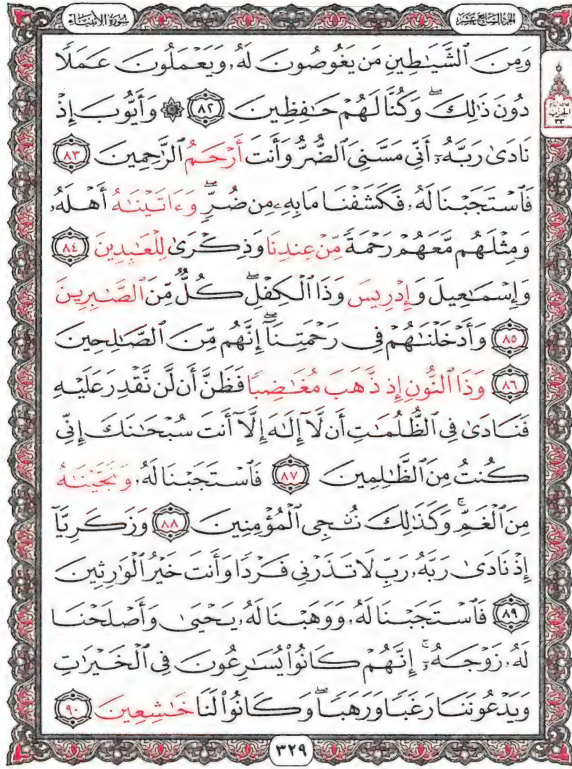 الجزء السابع عشر
سورة الأنبياء
الحزب
٣٣
وَمِنَ ٱلشَّيَٰطِينِ مَن يَغُوصُونَ لَهُۥ وَيَعْمَلُونَ عَمَلًا
دُونَ ذَٰلِكَ ۖ وَكُنَّا لَهُمْ حَٰفِظِينَ ﴿٨٢﴾ ۞ وَأَيُّوبَ إِذْ
نَادَىٰ رَبَّهُۥٓ أَنِّي مَسَّنِيَ ٱلضُّرُّ وَأَنتَ أَرْحَمُ ٱلرَّٰحِمِينَ ﴿٨٣﴾
فَٱسْتَجَبْنَا لَهُۥ فَكَشَفْنَا مَا بِهِۦ مِن ضُرٍّ ۖ وَءَاتَيْنَٰهُ أَهْلَهُۥ
وَمِثْلَهُم مَّعَهُمْ رَحْمَةً مِّنْ عِندِنَا وَذِكْرَىٰ لِلْعَٰبِدِينَ ﴿٨٤﴾
وَإِسْمَٰعِيلَ وَإِدْرِيسَ وَذَا ٱلْكِفْلِ ۖ كُلٌّ مِّنَ ٱلصَّٰبِرِينَ
﴿٨٥﴾ وَأَدْخَلْنَٰهُمْ فِي رَحْمَتِنَآ ۖ إِنَّهُم مِّنَ ٱلصَّٰلِحِينَ
﴿٨٦﴾ وَذَا ٱلنُّونِ إِذ ذَّهَبَ مُغَٰضِبًا فَظَنَّ أَن لَّن نَّقْدِرَ عَلَيْهِ
فَنَادَىٰ فِي ٱلظُّلُمَٰتِ أَن لَّآ إِلَٰهَ إِلَّآ أَنتَ سُبْحَٰنَكَ إِنِّي
كُنتُ مِنَ ٱلظَّٰلِمِينَ ﴿٨٧﴾ فَٱسْتَجَبْنَا لَهُۥ وَنَجَّيْنَٰهُ
مِنَ ٱلْغَمِّ ۚ وَكَذَٰلِكَ نُـۨجِي ٱلْمُؤْمِنِينَ ﴿٨٨﴾ وَزَكَرِيَّآ
إِذْ نَادَىٰ رَبَّهُۥ رَبِّ لَا تَذَرْنِي فَرْدًا وَأَنتَ خَيْرُ ٱلْوَٰرِثِينَ
﴿٨٩﴾ فَٱسْتَجَبْنَا لَهُۥ وَوَهَبْنَا لَهُۥ يَحْيَىٰ وَأَصْلَحْنَا
لَهُۥ زَوْجَهُۥٓ ۚ إِنَّهُمْ كَانُوا۟ يُسَٰرِعُونَ فِي ٱلْخَيْرَٰتِ
وَيَدْعُونَنَا رَغَبًا وَرَهَبًا ۖ وَكَانُوا۟ لَنَا خَٰشِعِينَ ﴿٩٠﴾
٣٢٩